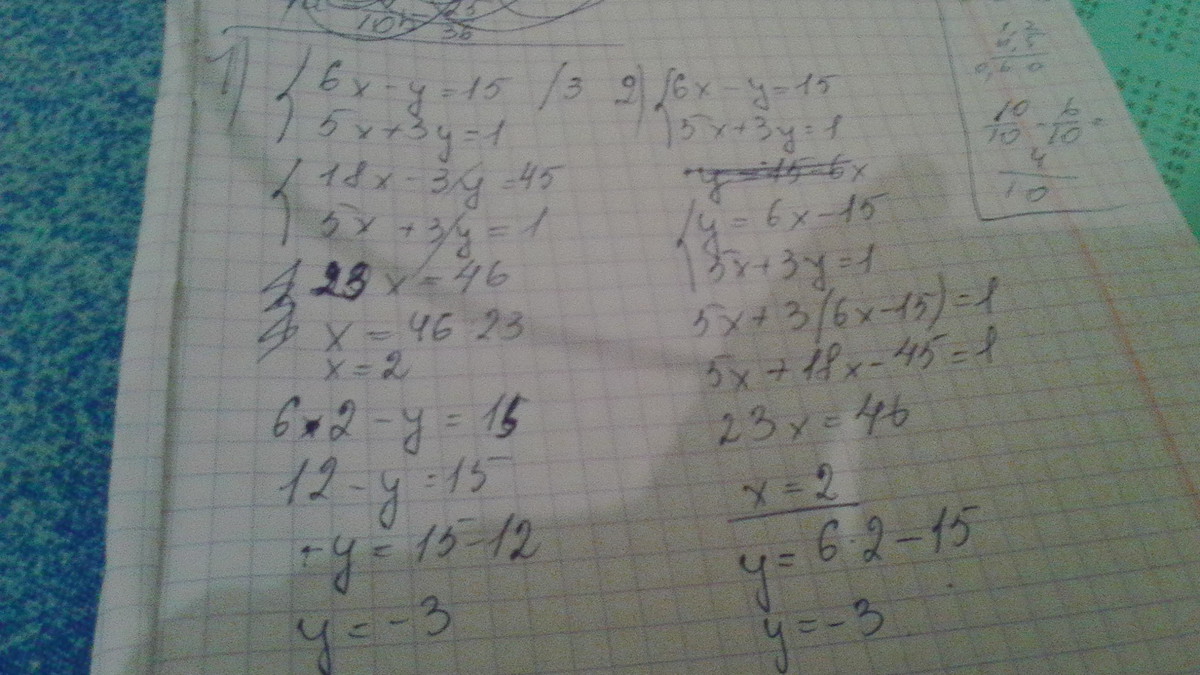 10 36
1) { 6x - y = 15 /3
5x + 3y = 1
{ 18x - 3y = 45
5x + 3y = 1
23x = 46
x = 46 23
x = 2
6 · 2 - y = 15
12 - y = 15
-y = 15 - 12
y = -3
2) { 6x - y = 15
5x + 3y = 1
{ y = 6x - 15
5x + 3y = 1
5x + 3(6x - 15) = 1
5x + 18x - 45 = 1
23x = 46
x = 2
y = 6 · 2 - 15
y = -3
0,60
10/10 - 6/10 =
4/10